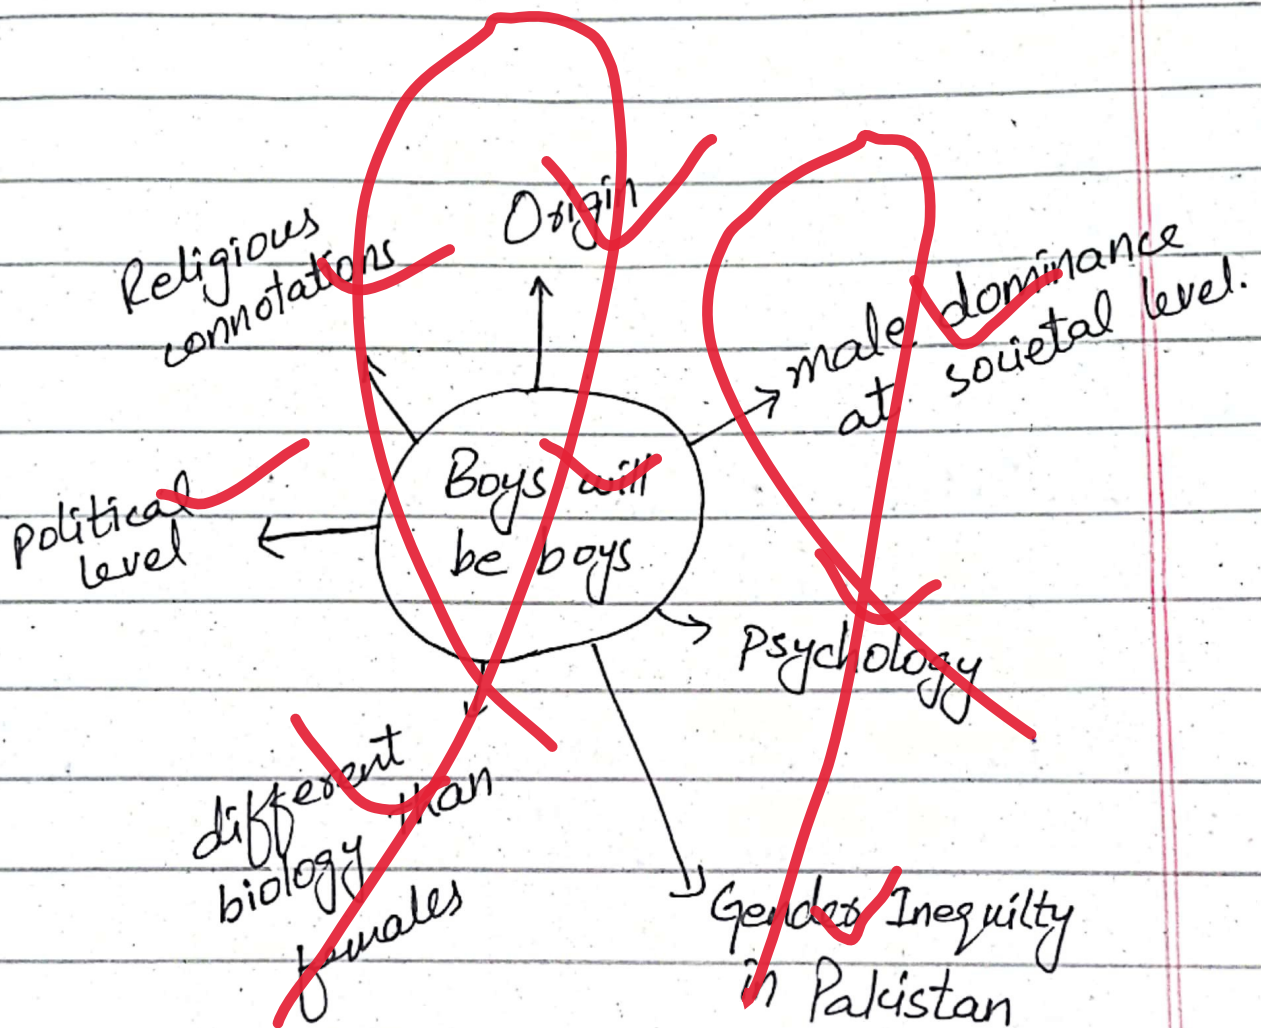 Origin
Religious
connotations
male dominance
at societal level.
Boys will
be boys
Political
level
Psychology
different
biology than
females
Gender Inequilty
in Pakistan